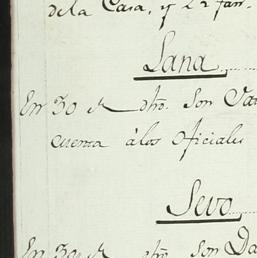 de la Casa, y 22 fan.
Lana
En 30 de dho. Son
cuenta à los Oficiales
Sevo
En 30 de dho. Son Da